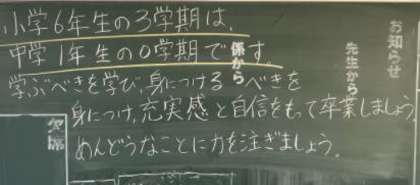 小学6年生の3学期は、
中学1年生の0学期です。
学ぶべきを学び、身につけるべきを
身につけ、充実感と自信をもって卒業しましょう。
めんどうなことに力を注ぎましょう。
係から
お知らせ
先生から
欠席